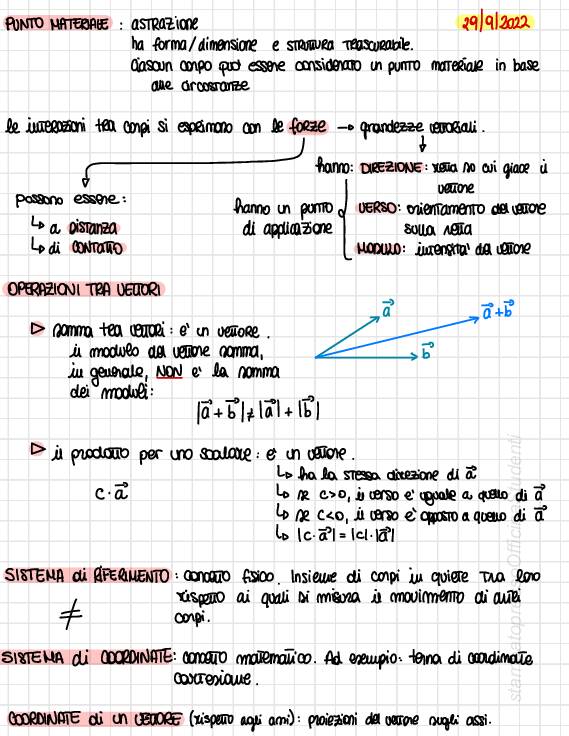 PUNTO MATERIALE : astrazione
29/9/2022
ha forma/dimensione e struttura trascurabile.
Ciascun corpo può essere considerato un punto materiale in base
alle circostanze
le interazioni tra corpi si esprimono con le forze → grandezze vettoriali.
hanno: DIREZIONE: retta su cui giace il
vettore
possono essere:
↳ a DISTANZA
↳ di CONTATTO
hanno un punto
di applicazione
VERSO: orientamento del vettore
sulla retta
MODULO: intensita' del vettore
OPERAZIONI TRA VETTORI
▷ somma tra vettori: e' un vettore.
il modulo del vettore somma,
in generale, NON e' la somma
dei moduli:
|a⃗ + b⃗| ≠ |a⃗| + |b⃗|
a⃗
a⃗+b⃗
b⃗
▷ il prodotto per uno scalare: e' un vettore.
c · a⃗
↳ ha la stessa direzione di a⃗
↳ se c>0, il verso e' uguale a quello di a⃗
↳ se c<0, il verso e' opposto a quello di a⃗
↳ |c·a⃗| = |c|·|a⃗|
SISTEMA di RIFERIMENTO: concetto fisico. Insieme di corpi in quiete tra loro
rispetto ai quali si misura il movimento di altri
corpi.
≠
SISTEMA di COORDINATE: concetto matematico. Ad esempio: terna di coordinate
cartesiane.
COORDINATE di un VETTORE (rispetto agli assi): proiezioni del vettore sugli assi.